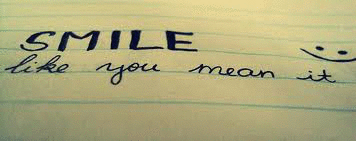 SMILE
like you mean it